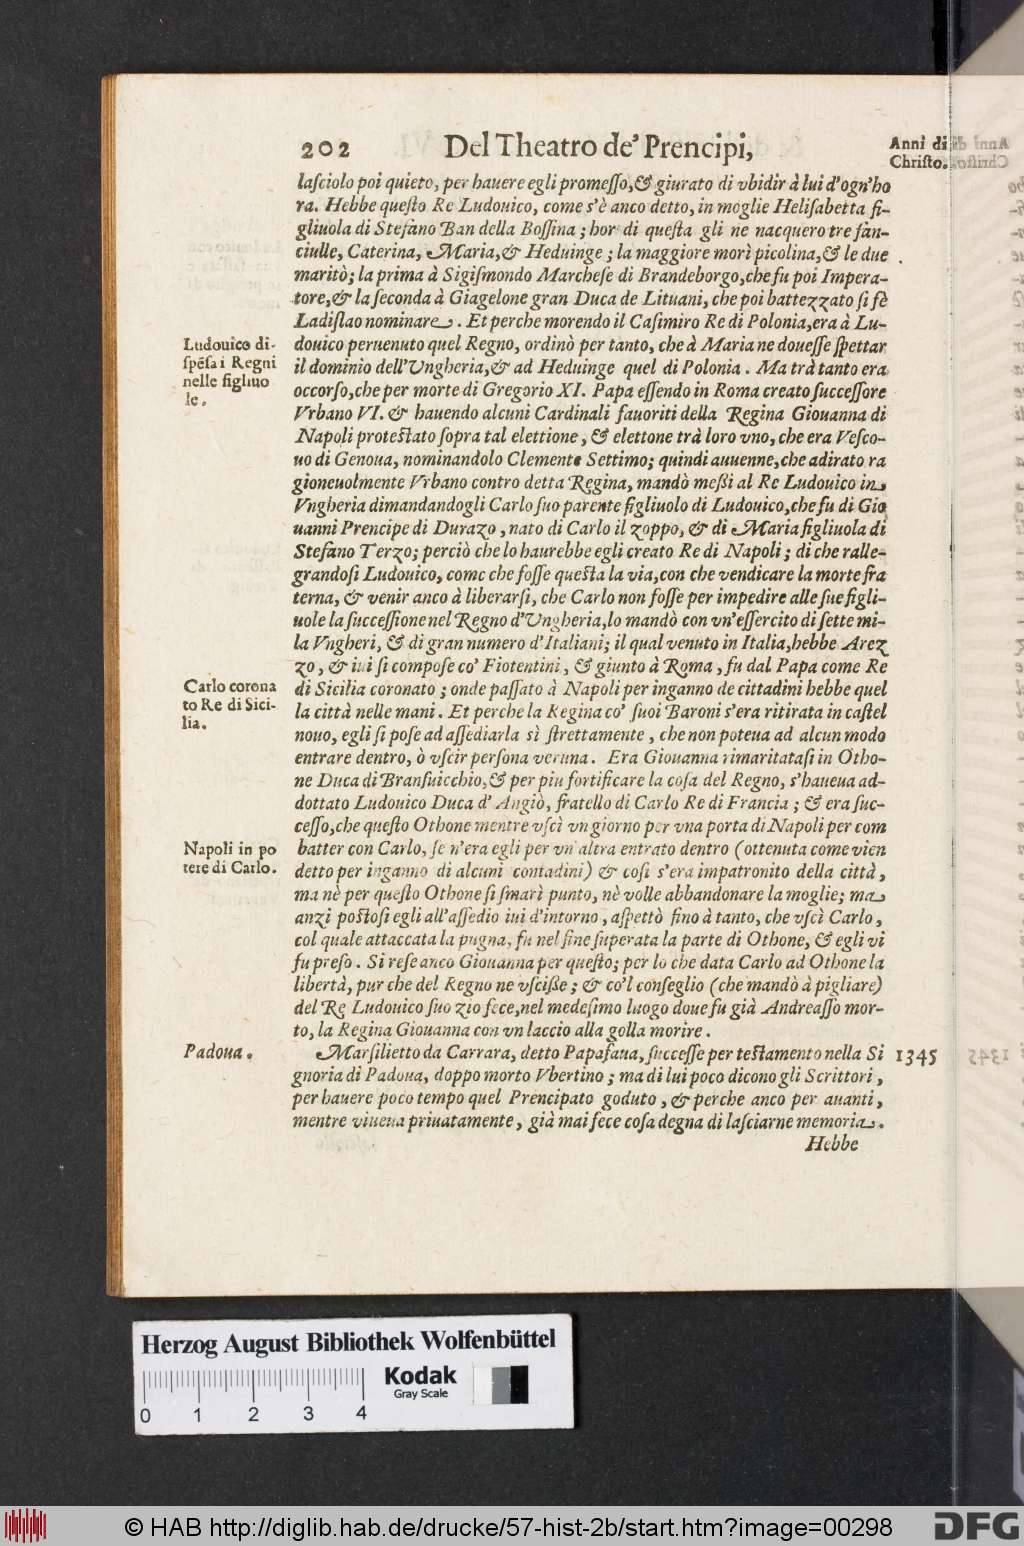 202 Del Theatro de' Prencipi,
Anni di
Christo.
laſciolo poi quieto, per hauere egli promeſſo,& giurato di vbidir à lui d'ogn'ho
ra. Hebbe queſto Re Ludouico, come s'è anco detto, in moglie Heliſabetta fi-
gliuola di Stefano Ban della Boſſina; hor di queſta gli ne nacquero tre fan-
ciulle, Caterina, Maria,& Heduinge; la maggiore morì picolina,& le due
maritò; la prima à Sigiſmondo Marcheſe di Brandeborgo,che fu poi Impera-
tore,& la ſeconda à Giagelone gran Duca de Lituani, che poi battezzato ſi fè
Ladiſlao nominare. Et perche morendo il Caſimiro Re di Polonia,era à Lu-
Ludouico di-
ſpēſa i Regni
nelle figliuo
le.
douico peruenuto quel Regno, ordinò per tanto, che à Maria ne doueſſe ſpettar
il dominio dell'Vngheria,& ad Heduinge quel di Polonia. Ma trà tanto era
occorſo,che per morte di Gregorio XI. Papa eſſendo in Roma creato ſucceſſore
Vrbano VI. & hauendo alcuni Cardinali fauoriti della Regina Giouanna di
Napoli proteſtato ſopra tal elettione, & elettone trà loro vno, che era Veſco-
uo di Genoua, nominandolo Clemente Settimo; quindi auuenne,che adirato ra
gioneuolmente Vrbano contro detta Regina, mandò meſſi al Re Ludouico in
Vngheria dimandandogli Carlo ſuo parente figliuolo di Ludouico,che fu di Gio
uanni Prencipe di Durazo, nato di Carlo il zoppo, & di Maria figliuola di
Stefano Terzo; perciò che lo haurebbe egli creato Re di Napoli; di che ralle-
grandoſi Ludouico, come che foſſe queſta la via,con che vendicare la morte fra
terna, & venir anco à liberarſi, che Carlo non foſſe per impedire alle ſue figli-
uole la ſucceſſione nel Regno d'Vngheria,lo mandò con vn'eſſercito di ſette mi-
la Vngheri, & di gran numero d'Italiani; il qual venuto in Italia,hebbe Arez
zo, & iui ſi compoſe co' Fiotentini, & giunto à Roma, fu dal Papa come Re
Carlo corona
to Re di Sici-
lia.
di Sicilia coronato; onde paſſato à Napoli per inganno de cittadini hebbe quel
la città nelle mani. Et perche la Regina co' ſuoi Baroni s'era ritirata in caſtel
nouo, egli ſi poſe ad aſſediarla sì ſtrettamente, che non poteua ad alcun modo
entrare dentro, ò vſcir perſona veruna. Era Giouanna rimaritataſi in Otho-
ne Duca di Branſuicchio,& per piu fortificare la coſa del Regno, s'haueua ad-
dottato Ludouico Duca d'Angiò, fratello di Carlo Re di Francia; & era ſuc-
ceſſo,che queſto Othone mentre vſcì vn giorno per vna porta di Napoli per com
Napoli in po
tere di Carlo.
batter con Carlo, ſe n'era egli per vn'altra entrato dentro (ottenuta come vien
detto per inganno di alcuni contadini) & coſi s'era impatronito della città,
ma nè per queſto Othone ſi ſmarì punto, nè volle abbandonare la moglie; ma
anzi poſtoſi egli all'aſſedio iui d'intorno, aſpettò fino à tanto, che vſcì Carlo,
col quale attaccata la pugna, fu nel fine ſuperata la parte di Othone, & egli vi
fu preſo. Si reſe anco Giouanna per queſto; per lo che data Carlo ad Othone la
libertà, pur che del Regno ne vſciſſe; & co'l conſeglio (che mandò à pigliare)
del Re Ludouico ſuo zio fece,nel medeſimo luogo doue fu già Andreaſſo mor-
to, la Regina Giouanna con vn laccio alla golla morire.
Padoua.
Marſilietto da Carrara, detto Papafaua, ſucceſſe per teſtamento nella Si
1345
gnoria di Padoua, doppo morto Vbertino; ma di lui poco dicono gli Scrittori,
per hauere poco tempo quel Prencipato goduto, & perche anco per auanti,
mentre viueua priuatamente, già mai fece coſa degna di laſciarne memoria.
Hebbe
Herzog August Bibliothek Wolfenbüttel
Kodak
Gray Scale
0 1 2 3 4
© HAB http://diglib.hab.de/drucke/57-hist-2b/start.htm?image=00298
DFG